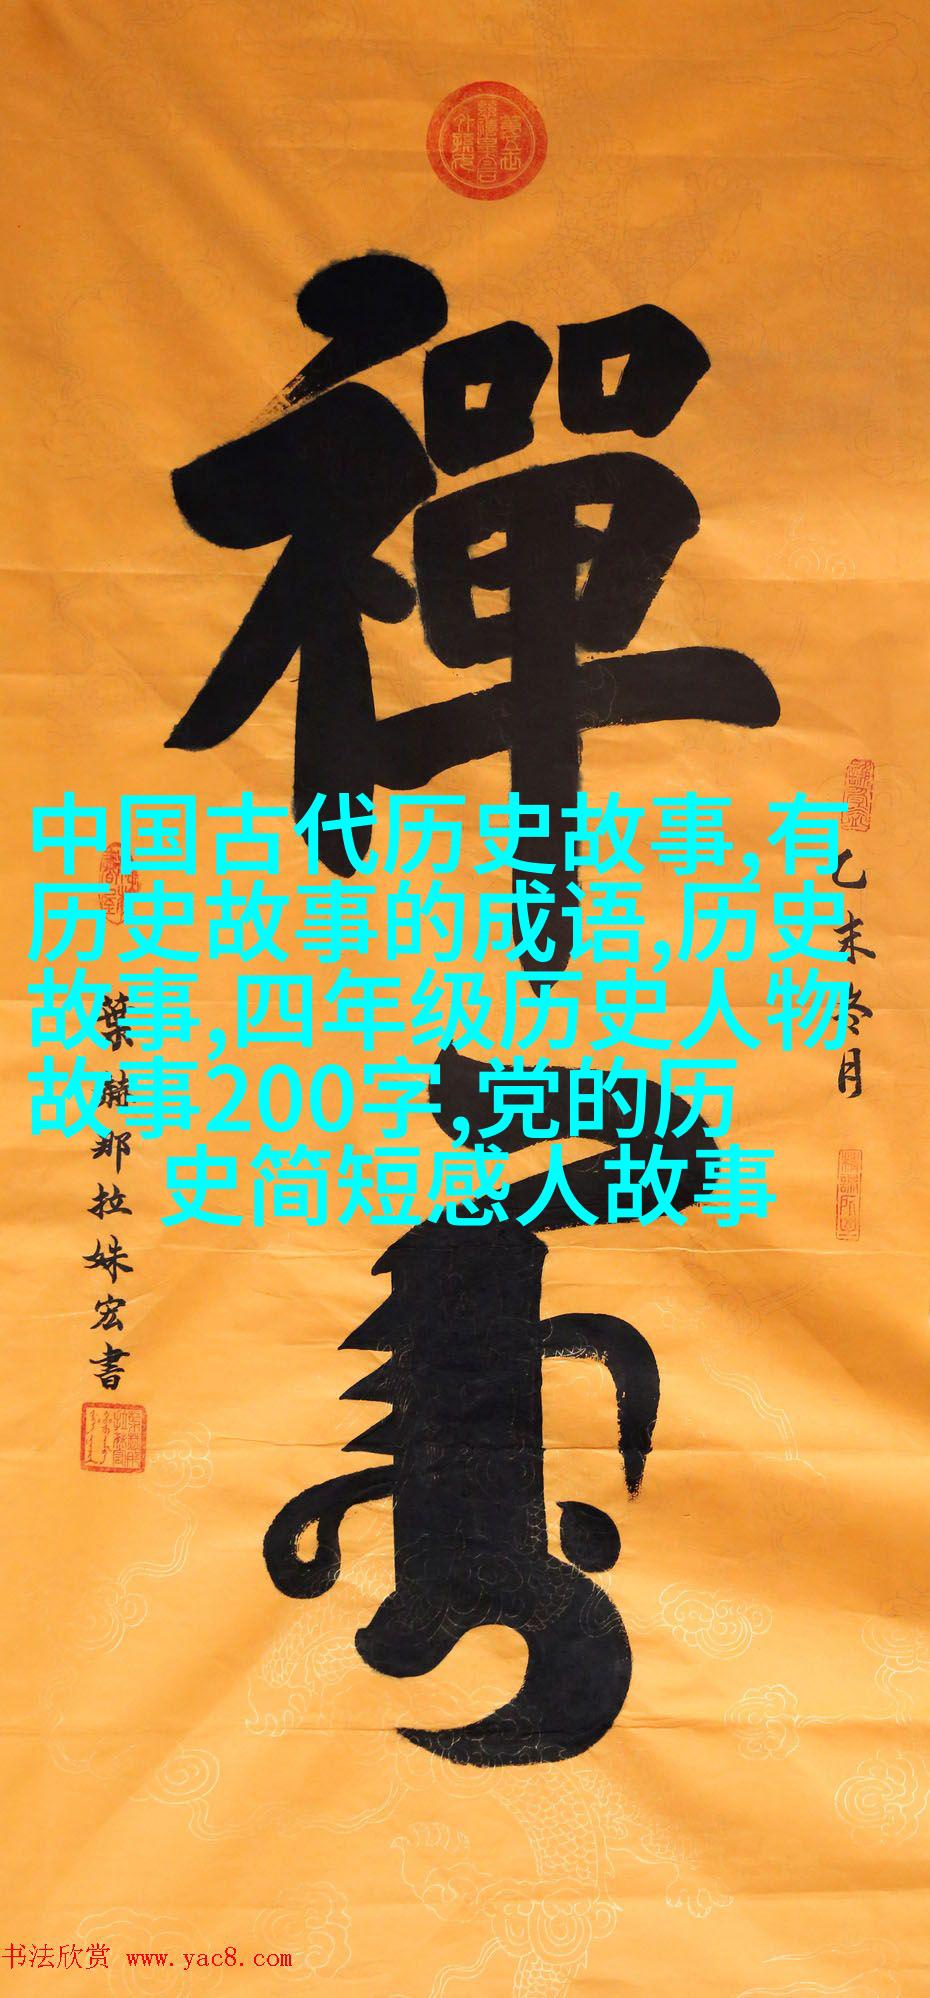 禪
乙未冬月
葉赫那拉姝宏書
中国古代历史故事,有
历史故事的成语,历史
故事,四年级历史人物
故事200字,党的历
史简短感人故事
书法欣赏 www.yac8.com